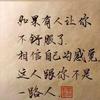 如果有人让你
不舒服了
相信自己的感觉
这人跟你不是
一路人